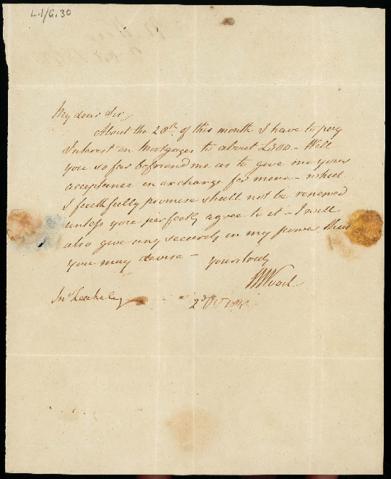 L1/G.30
My dear Sir,
About the 28th of this month I have to pay
Interest on Mortgages to about £300 – Will
you so far befriend me as to give me your
acceptance in exchange for mine – which
I faithfully promise shall not be renewed
unless you perfectly agree to it – I will
also give any security in my power that
you may desire – yours truly
Wood
Jno Leakey
2d